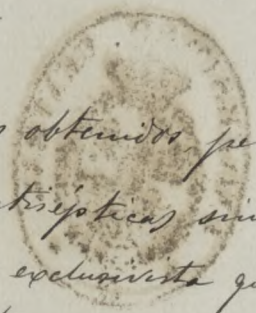 obtenidos pe
tisépticas sin
exclusivista q